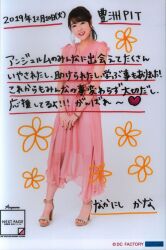 2019年12月10日(火) 豊洲PIT
アンジュルムのみんなに出会ってたくさん
いやされたし、助けられたし、学ぶ事もあったよ!
これからもみんなの事変わらず大切だし、
応援してるよ!!! がんばれ〜
なかにし かな
NEXT PAGE
© DC FACTORY